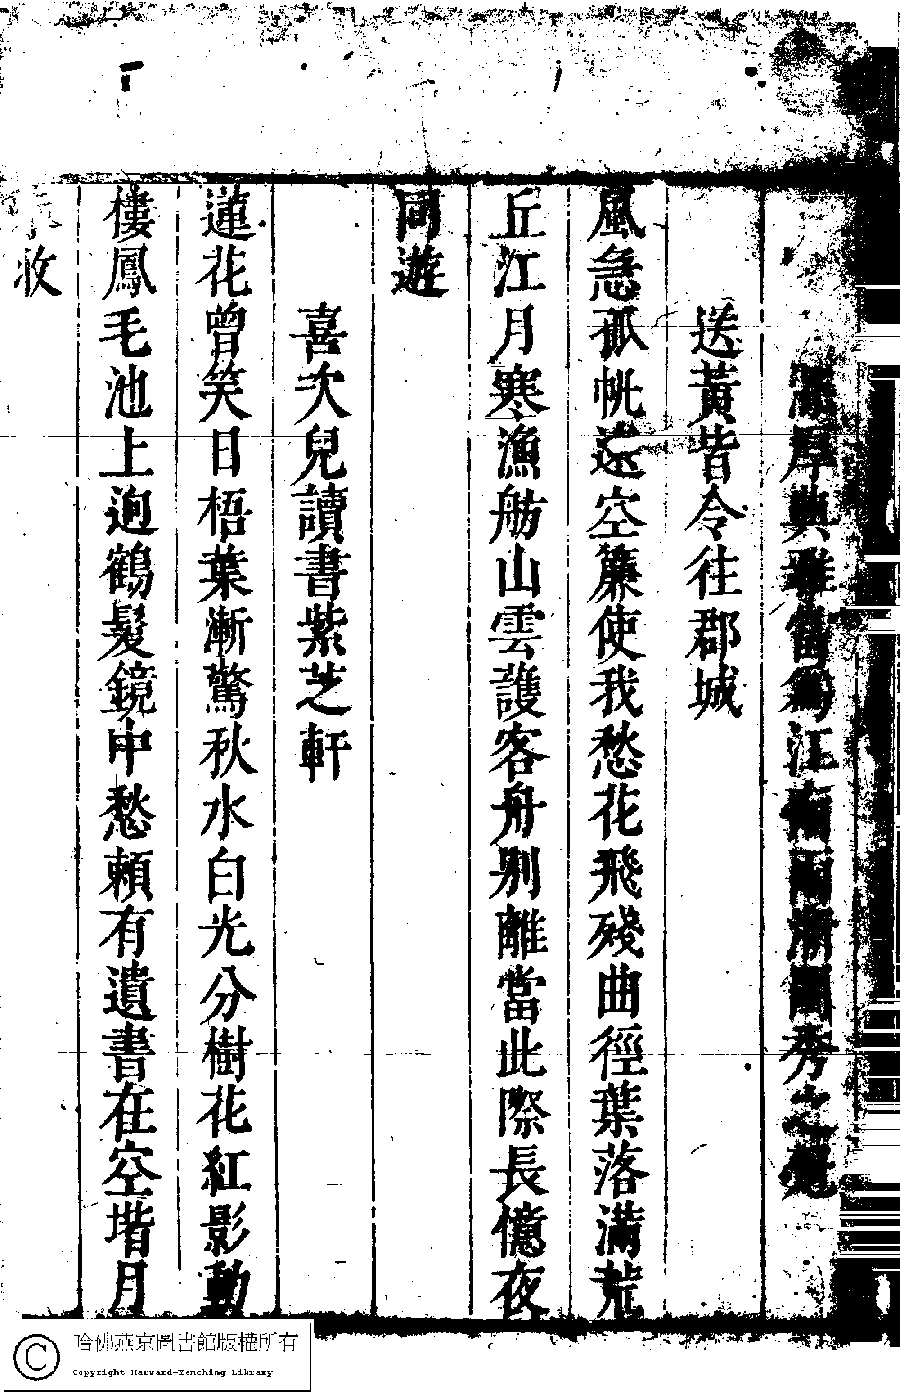 渾厚典雅當爲江南兩浙閨秀之冠
送黃皆令往郡城
風急孤帆遠空簾使我愁花飛殘曲徑葉落滿荒
丘江月寒漁舫山雲護客舟別離當此際長憶夜
同遊
喜次兒讀書紫芝軒
蓮花曾笑日梧葉漸驚秋水白光分樹花紅影動
樓鳳毛池上逈鶴髮鏡中愁頼有遺書在空堦月
收
哈佛燕京圖書館版權所有
Copyright Harvard-Yenching Library